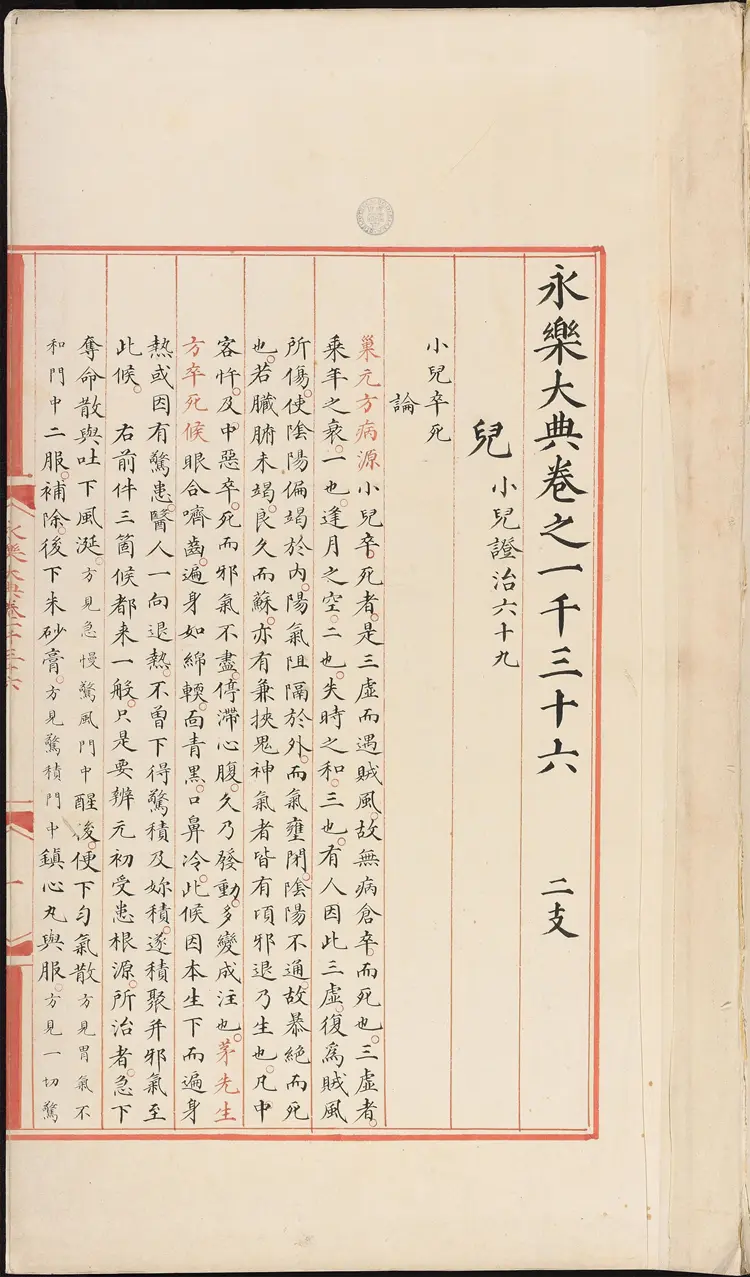 永樂大典卷之一千三十六 二支
兒 小兒證治六十九
小兒卒死
論
巢元方病源小兒卒死者。是三虛而遇賊風。故無病倉卒。而死也。三虛者。
乘年之衰。一也。逢月之空。二也。失時之和。三也。有人因此三虛。復為賊風
所傷。使陰陽偏竭於內。陽氣阻隔於外。而氣壅閉。陰陽不通。故暴絕而死
也。若臟腑未竭。良久而蘇。亦有兼挾鬼神氣者皆有頃邪退乃生也。凡中
客忤。及中惡卒。死而邪氣不盡。停滯心腹。久乃發動。多變成注也。茅先生
方卒死候眼合嚌齒。遍身如綿輭。面青黑。口鼻冷。此候因本生下而遍身
熱或因有驚患。醫人一向退熱。不曾下得驚積及妳積。遂積聚并邪氣至
此候。 右前件三箇候都來一般。只是要辨元初受患根源。所治者。急下
奪命散與吐下風涎。方見急慢驚風門中醒後。便下勻氣散方見胃氣不
和門中二服。補除。後下朱砂膏。方見驚積門中鎮心丸與服。方見一切驚
永樂大典卷一千三十六
一